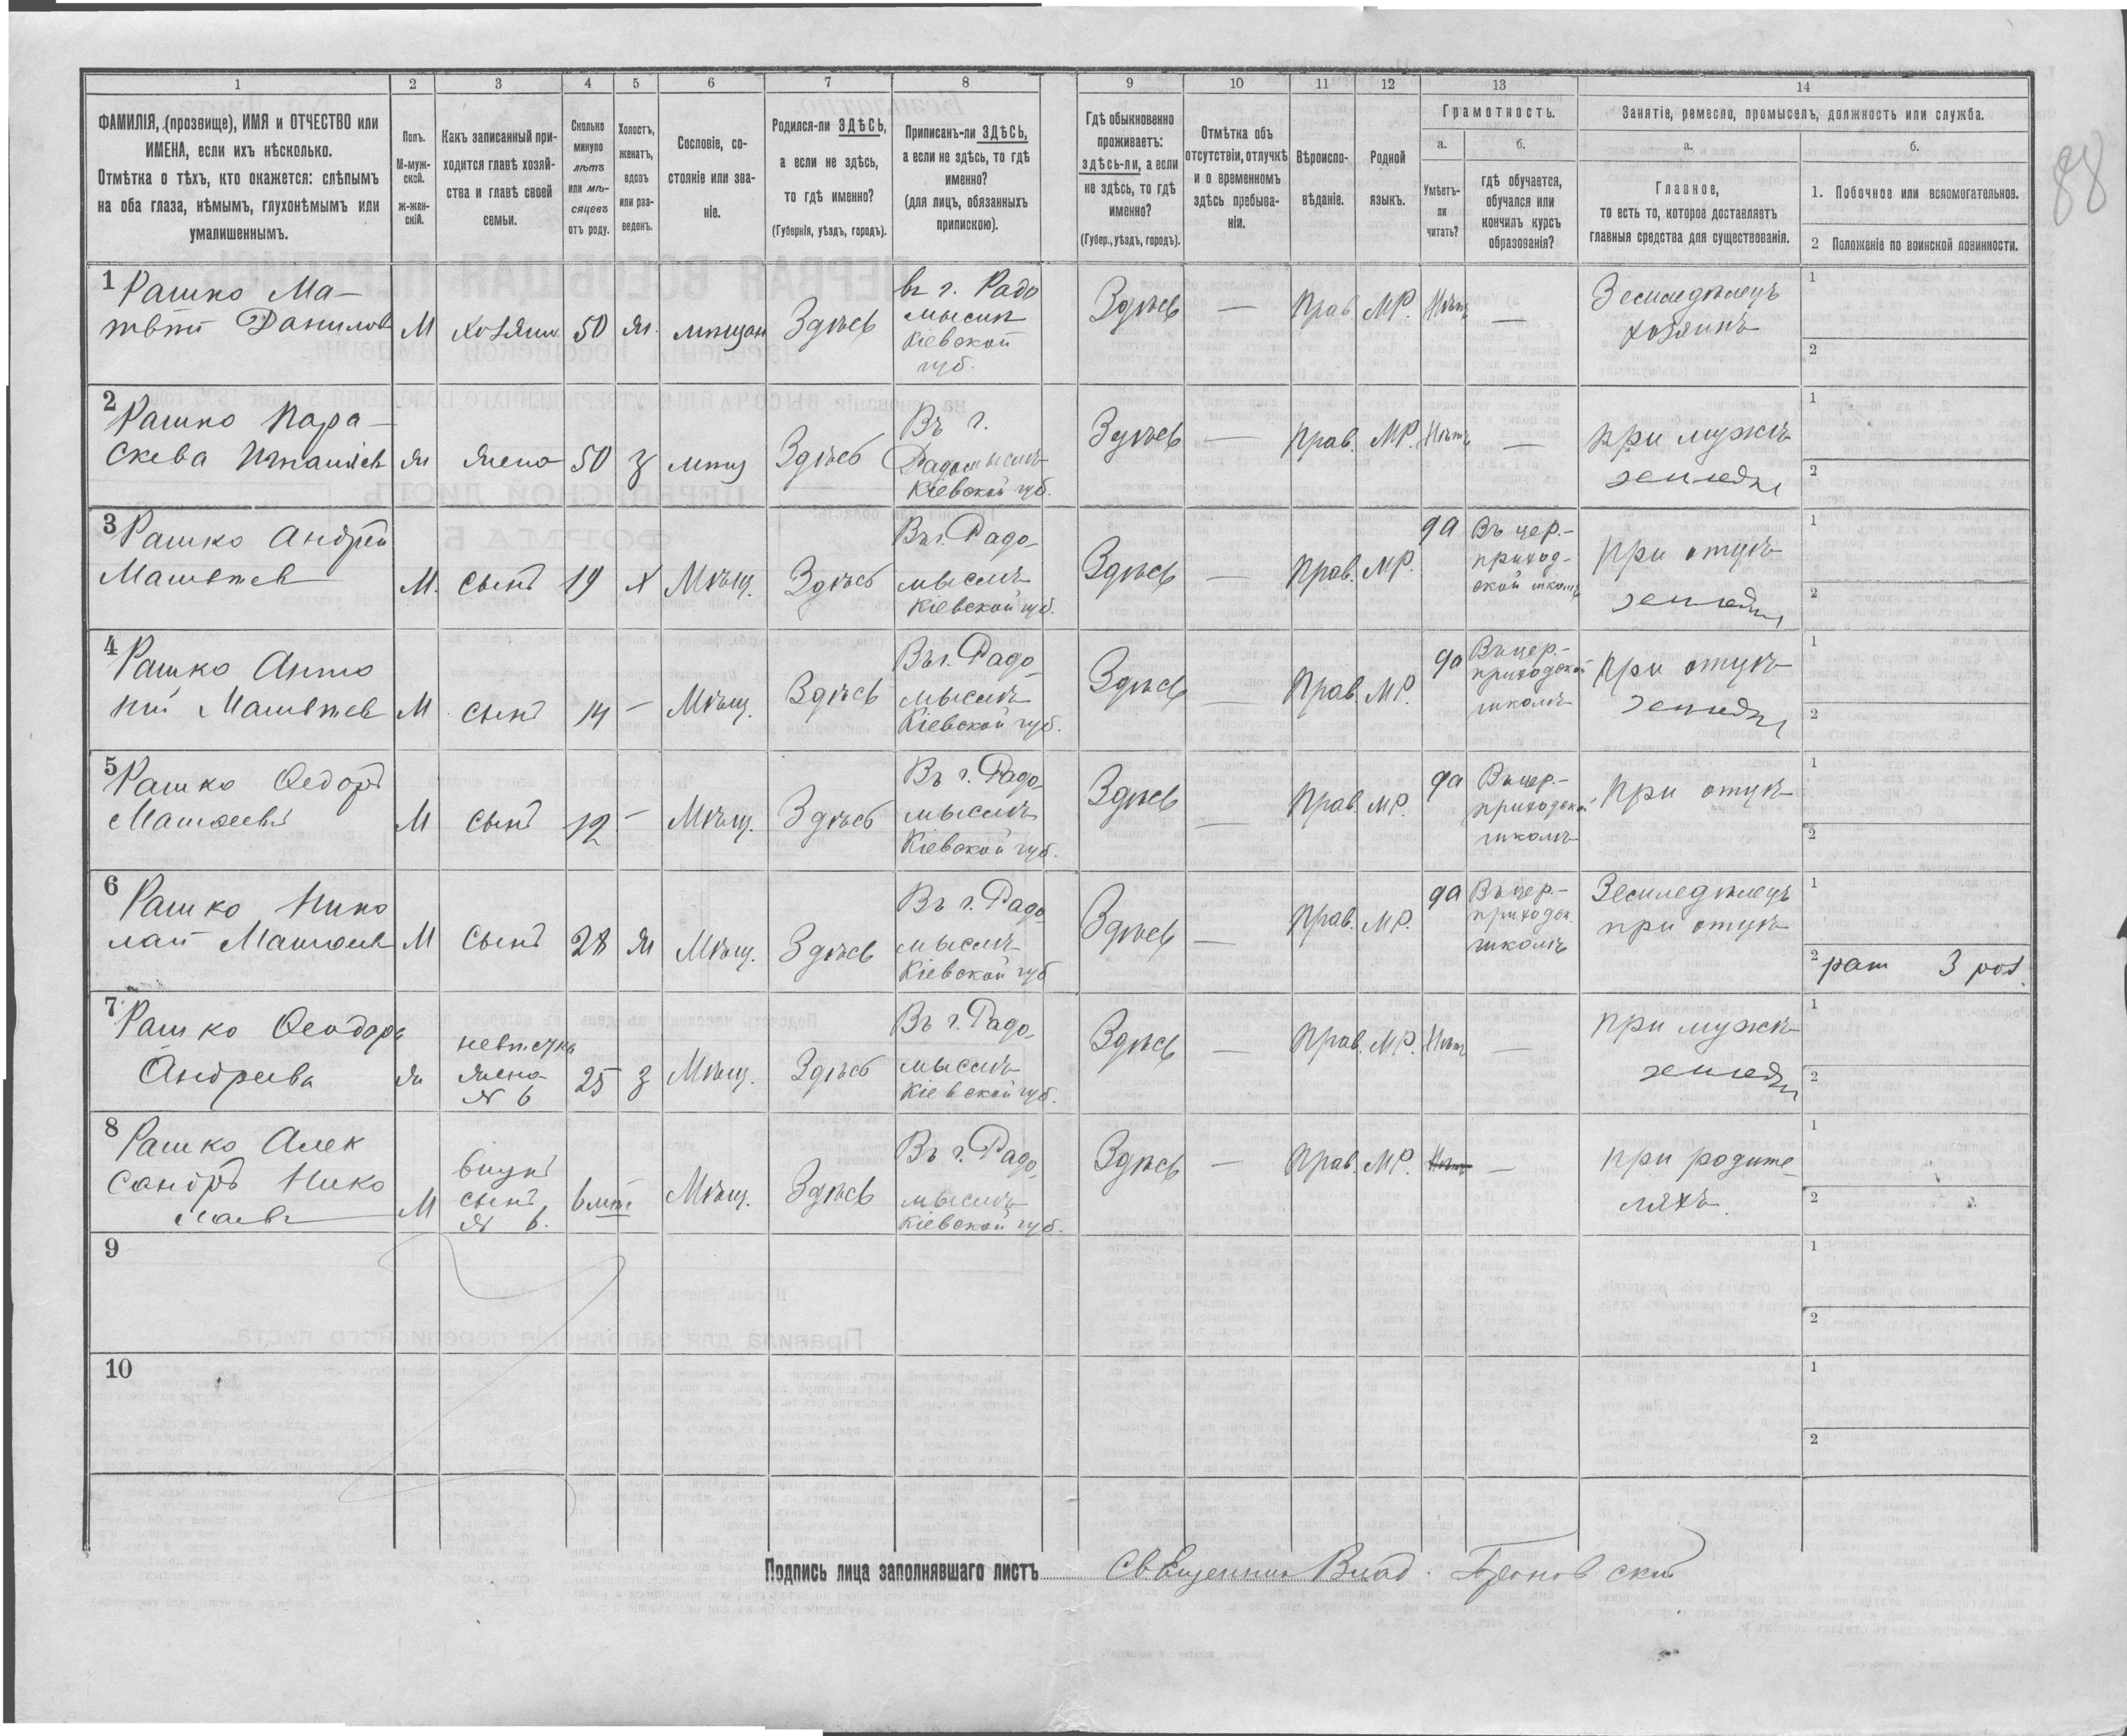 1 2 3 4 5 6 7 8 9 10 11 12 13 14
ФАМИЛІЯ, (прозвище), ИМЯ и ОТЧЕСТВО или
ИМЕНА, если ихъ нѣсколько.
Отмѣтка о тѣхъ, кто окажется: слѣпымъ
на оба глаза, нѣмымъ, глухонѣмымъ или
умалишеннымъ.
Полъ.
М-муж-
ской.
ж-жен-
скій.
Какъ записанный при-
ходится главѣ хозяй-
ства и главѣ своей
семьи.
Сколько
минуло
лѣтъ
или мѣ-
сяцевъ
отъ роду.
Холостъ,
женатъ,
вдовъ
или раз-
веденъ.
Сословіе, со-
стояніе или зва-
ніе.
Родился-ли ЗДѢСЬ,
а если не здѣсь,
то гдѣ именно?
(Губернія, уѣздъ, городъ).
Приписанъ-ли ЗДѢСЬ,
а если не здѣсь, то гдѣ
именно?
(для лицъ, обязанныхъ
припискою).
Гдѣ обыкновенно
проживаетъ:
здѣсь-ли, а если
не здѣсь, то гдѣ
именно?
(Губер., уѣздъ, городъ).
Отмѣтка объ
отсутствіи, отлучкѣ
и о временномъ
здѣсь пребыва-
ніи.
Вѣроиспо-
вѣданіе.
Родной
языкъ.
Грамотность.
а.
Умѣетъ-
ли
читать?
б.
гдѣ обучается,
обучался или
кончилъ курсъ
образованія?
Занятіе, ремесло, промыселъ, должность или служба.
а.
Главное,
то есть то, которое доставляетъ
главныя средства для существованія.
б.
1. Побочное или вспомогательное.
2 Положеніе по воинской повинности.
88
1 Рашко Ма-
твѣй Данилов
М
хозяин
50
ж.
мѣщан
Здѣсь
въ г. Радо
мыслѣ
Кіевской
губ.
Здѣсь
—
Прав
МР.
Нѣтъ
—
Земледѣлецъ
хозяинъ
1
2
2 Рашко Пара-
скева Игнатіев
ж
жена
50
з
мѣщ
Здѣсь
Въ г.
Радомыслѣ
Кіевской губ.
Здѣсь
—
Прав.
МР.
Нѣтъ
—
при мужѣ
землед
1
2
3 Рашко Андрей
Матвѣев
М.
сынъ
19
х
Мѣщ.
Здѣсь
Въ г. Радо-
мыслѣ
Кіевской губ.
Здѣсь
—
Прав.
МР.
да
Въ цер.-
приход-
ской школѣ
при отцѣ
землед
1
2
4 Рашко Анто
ній Матвѣев
М
сынъ
14
—
Мѣщ.
Здѣсь
Въ г. Радо-
мыслѣ
Кіевской губ.
Здѣсь
—
Прав.
МР.
да
Въ цер.-
приходской
школѣ
при отцѣ
землед
1
2
5 Рашко Ѳедоръ
Матвеевъ
М
сынъ
12
—
Мѣщ.
Здѣсь
Въ г. Радо-
мыслѣ
Кіевской губ.
Здѣсь
—
Прав.
МР.
да
Въ цер.-
приходской
школѣ
при отцѣ
1
2
6 Рашко Нико
лай Матвеев
М
сынъ
28
ж
Мѣщ.
Здѣсь
Въ г. Радо
мыслѣ
Кіевской губ
Здѣсь
—
Прав.
МР.
да
Въ цер-
приходск.
школѣ
Земледѣлецъ
при отцѣ
1
2 рат 3 раз.
7 Рашко Ѳеодора
Андреева
ж
невѣстка
жена
№ 6
25
з
Мѣщ.
Здѣсь
Въ г. Радо-
мыслѣ
Кіевской губ.
Здѣсь
—
Прав.
МР.
Нѣтъ
—
при мужѣ
землед
1
2
8 Рашко Алек
сандръ Нико
лаевъ
М
внукъ
сынъ
№ 6.
6 лѣт
Мѣщ.
Здѣсь
Въ г. Радо-
мыслѣ
Кіевской губ.
Здѣсь
—
Прав.
МР.
Нѣтъ
—
при родите
ляхъ.
1
2
9
1
2
10
1
2
Подпись лица заполнявшаго листъ Священник Влад.